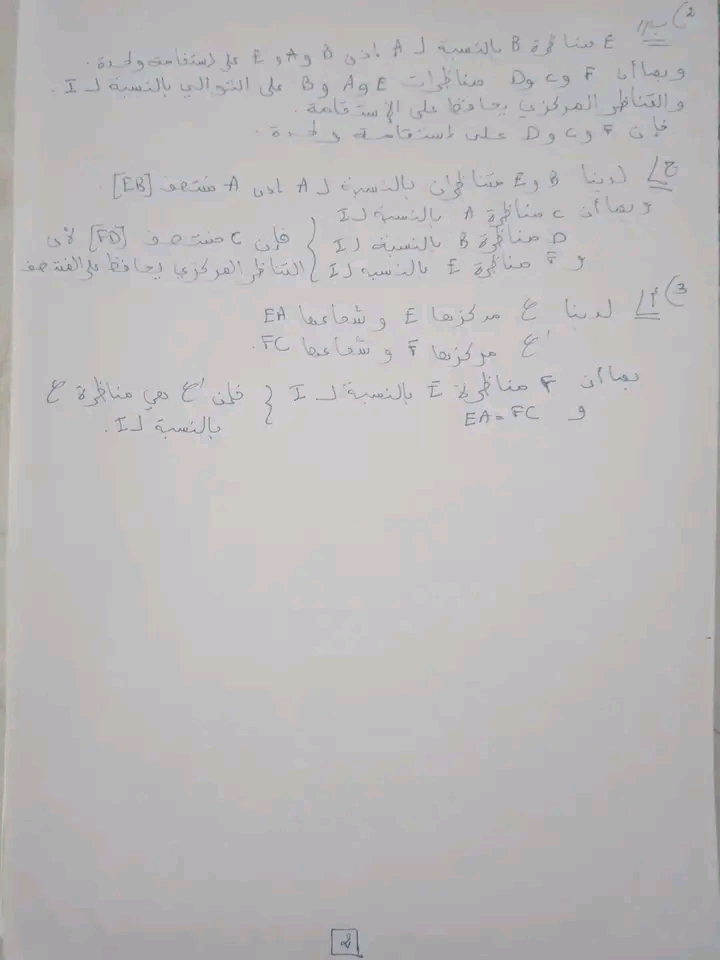 2) ب//
E مناظرة B بالنسبة لـ A إذن B و A و E على إستقامة واحدة.
وبما أن F و C و D مناظرات E و A و B على التوالي بالنسبة لـ I.
والتناظر المركزي يحافظ على الإستقامة.
فإن F و C و D على إستقامة واحدة.
ج/ لدينا B و E متناظران بالنسبة لـ A إذن A منتصف [EB].
وبما أن C مناظرة A بالنسبة لـ I
D مناظرة B بالنسبة لـ I } فإن C منتصف [FD] لأن
و F مناظرة E بالنسبة لـ I } التناظر المركزي يحافظ على المنتصف
3) أ/ لدينا ع مركزها E و شعاعها EA
ع' مركزها F و شعاعها FC.
بما أن F مناظرة E بالنسبة لـ I } فإن ع' هي مناظرة ع
و EA = FC } بالنسبة لـ I.
2